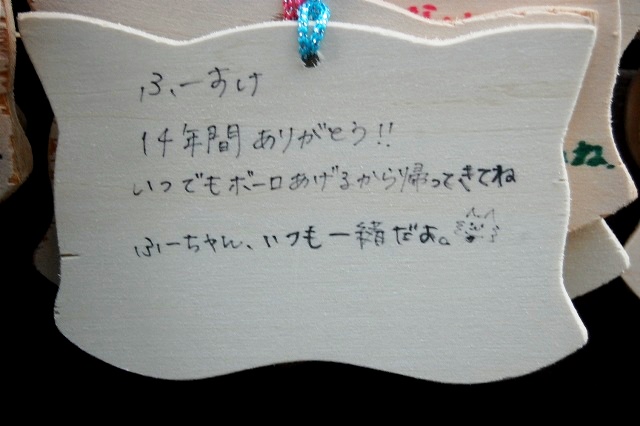 ふーすけ
14年間ありがとう!!
いつでもボーロあげるから帰ってきてね
ふーちゃん、いつも一緒だよ。
ね